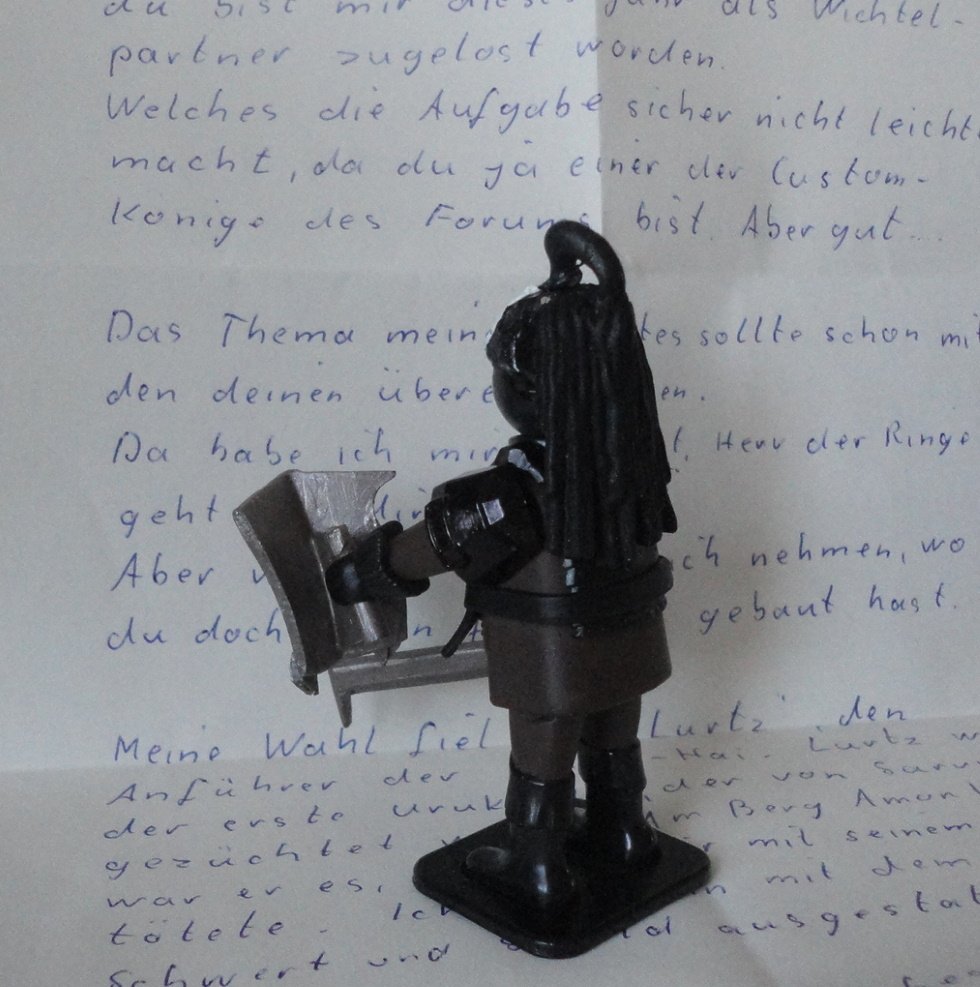 du bist mir dieses Jahr als Wichtel-
partner zugelost worden.
Welches die Aufgabe sicher nicht leicht
macht, da du ja einer der Custom-
Könige des Forums bist. Aber gut....
Das Thema mein tes sollte schon mit
den deinen über en.
Da habe ich mir Herr der Ringe
geht dir
Aber ich nehmen, wo
du doch gebaut hast.
Meine Wahl fiel Lurtz den
Anführer der -Hai. Lurtz w
der erste Uruk der von Saru
gezüchtet Am Berg Amon
war er es, mit seinem
tötete. Ich mit dem
Schwert und ausgestat